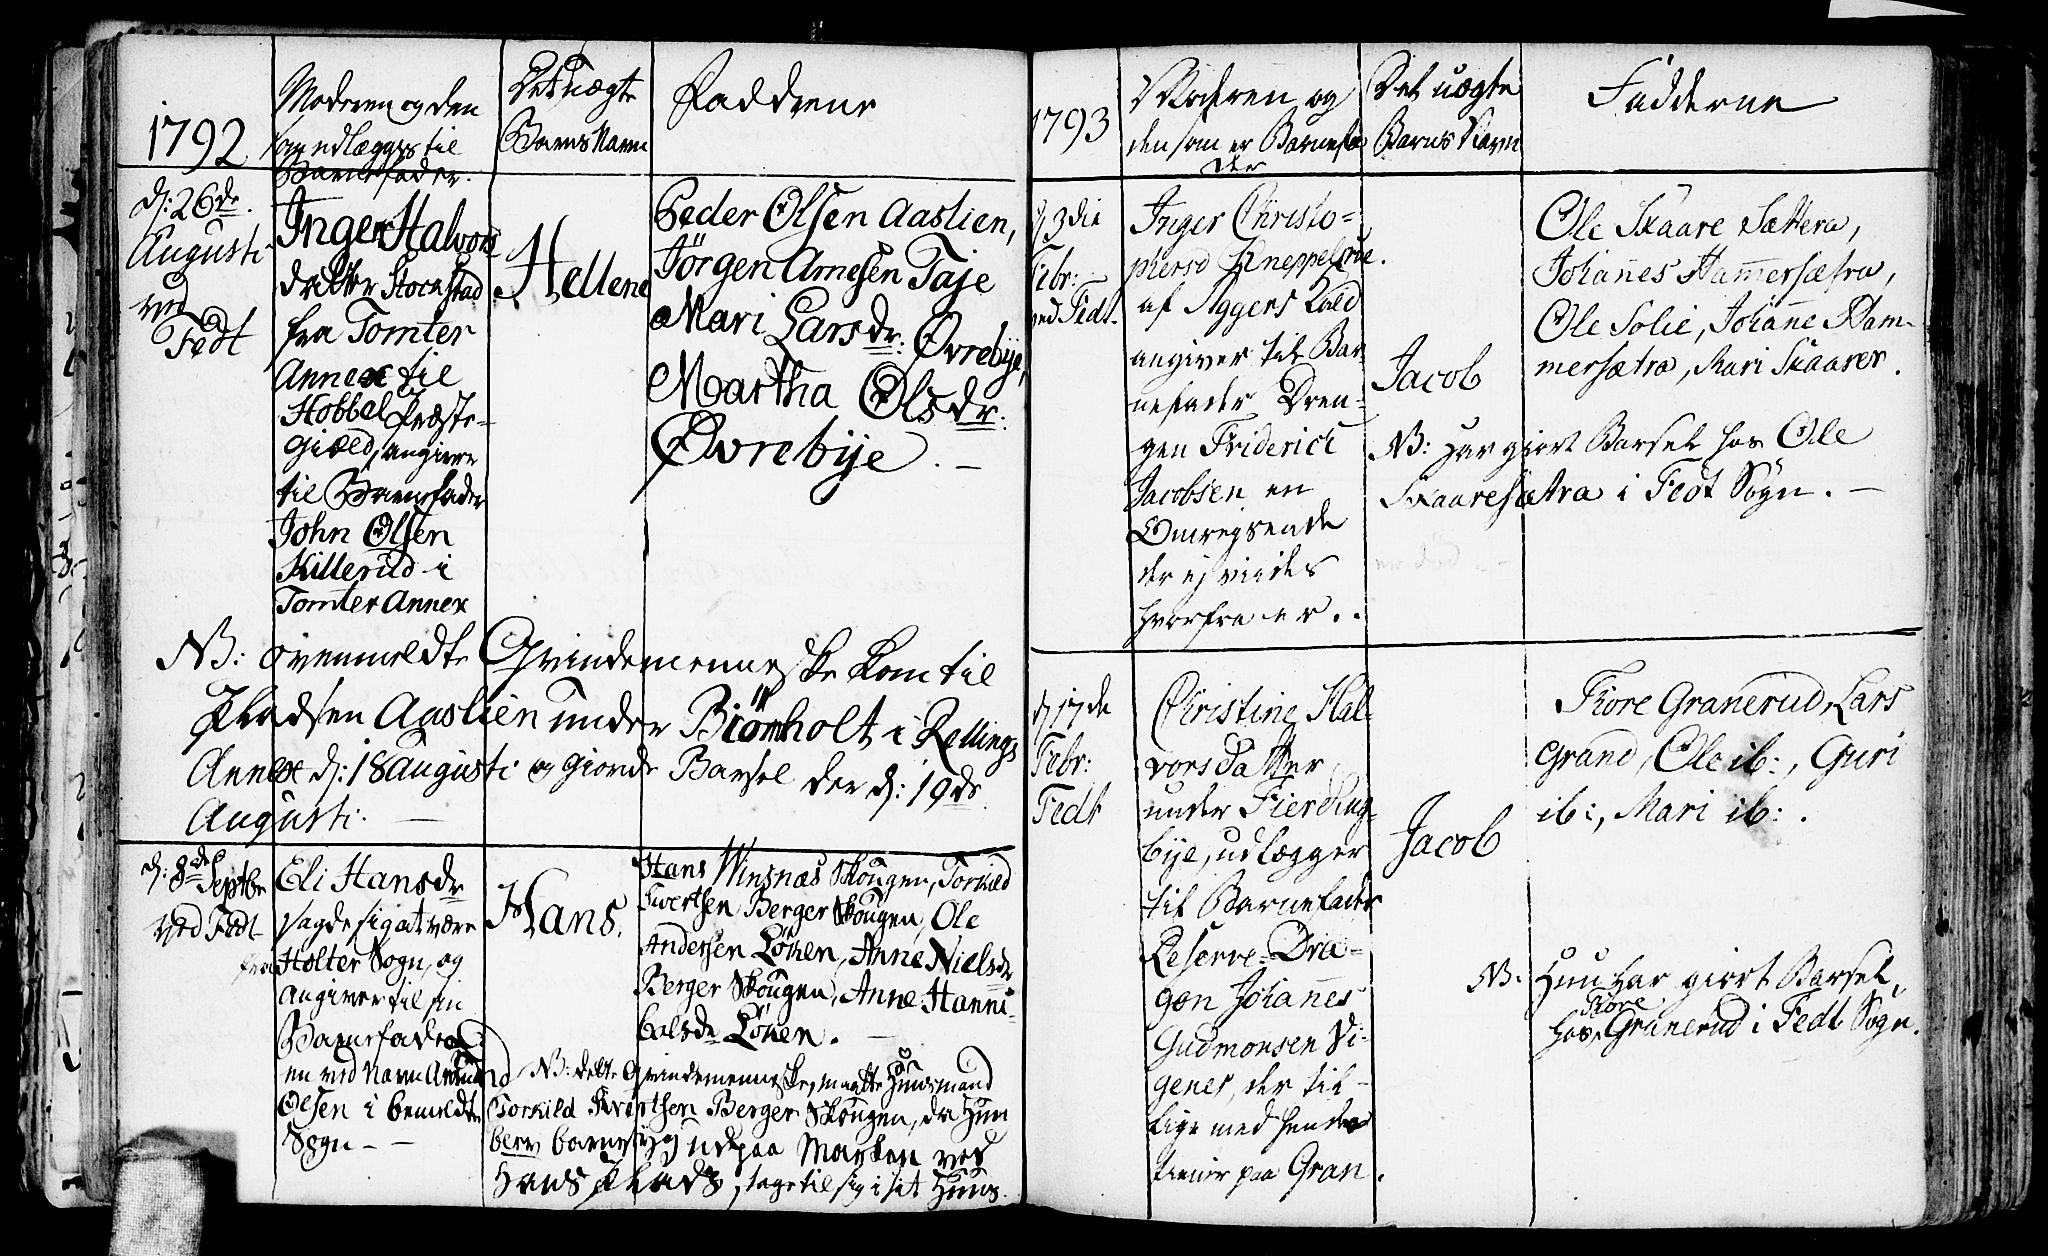 1792
Moderen og den
som udlægges til
Barnefader.
Det uægte
Barns Navn
Faddrene
d: 26de
Augusti
ved
Fedt
Inger Halvors
datter Stockstad
fra Tomter
Annex til
Hobbel Præste-
Gield, angiver
til Barnefader
John Olsen
Killerud i
Tomter Annex
Hellene
Peder Olsen Aaslien,
Jörgen Arnesen Taje
Mari Larsdr: Øvrebÿe,
Martha Olsdr:
Øvrebÿe. –
NB: ovenmeldte Qvindemenneske kom til
Pladsen Aaslien under Biörnholt i Rellings
Annex d: 18 Augusti og giorde Barsel der d: 19de
Augusti. –
d: 8de Septbr
ved Fedt
Eli Hansdr
sagde sig at være
fra Holter Sogn, og
angiver til sin
Barnefader
en ved Navn Amund
Olsen i bemeldte
Sogn – –
Hans.
Hans Winsnæs Skougen, Torkild
Ivertsen Berger Skougen, Ole
Andersen Löken, Anne Nielsdr
Berger Skougen, Anne Hanni-
balsdr Löken. –
NB: dette Qvindemenneske, maatte Huusmand
Torkild Ivertsen Berger Skougen, da Hun
blev barnesyg ude paa Marken ved
Hans Plads, tage til sig i sit Huus.
1793
Modren og
den som er Barnefa
der
Det uægte
Barns Navn
Fadderne
d 3die
Febr:
ved Fedt.
Inger Christo-
phersd Kneppelrie.
af Aggers
angiver til Bar-
nefader Dren-
gen Friderich
Jacobsen en
Omreisende
der ej viides
hvorfra er. .
Jacob
Ole Skaare Sættera,
Johañes Ham̃ersætra,
Ole Solie, Johañe Ham-
mersætra, Mari Skaarer.
NB: Har giort Barsel hos Ole
Skaaresætra i Fedt Sögn. –
d 17de
Febr:
Fedt
Christine Hal-
vorsdatter
under Fierding-
bÿe, udlægger
til Barnefader
Reserve-Dra-
gon Johañes
Gudmonsen Vi-
genes, der til-
lige med hende
tiener paa Gran.
Jacob
Tore Granerud, Lars
Grand, Ole ib:, Guri
ib:, Mari ib: .
NB: Hun har giort Barsel,
Tore
hos Granerud i Fedt Sogn.